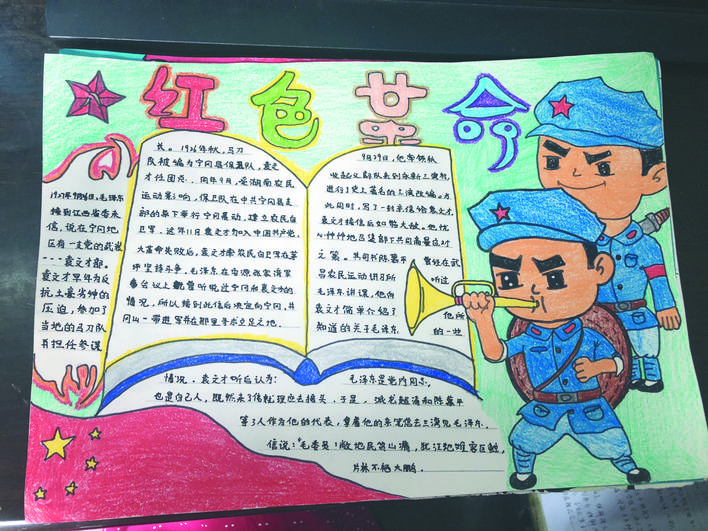 红色革命
1927年9月26日,毛泽东
接到江西省委来
信,说在宁冈地
区有一支党的武装
----袁文才部。
袁文才早年为反
抗土豪劣绅的
压迫,参加了
当地的马刀队
并担任参谋
长。1926年秋,马刀
队被编为宁冈县保卫队,袁文
才任团总。同年9月,受湖南农民
运动影响,保卫队在中共宁冈县支
部的领导下举行宁冈暴动,建立农民自
卫军。这年11月袁文才加入中国共产党。
大革命失败后,袁文才率农民自卫军在茅
坪坚持斗争。毛泽东在
委会议上
情况,所以接到此信后决定向宁冈、井
冈山一带进军并在那里寻求立足之地。
9月29日,他率领秋
收起义部队来到永新三湾村
进行了史上著名的三湾改编。与
此同时,写了一封亲信给袁文才,
袁文才接信后如临大敌。他忧
心忡忡地召集部下共同商量应对
之策。共司书陈慕平 曾经在武
昌农民运动讲习所 听过
毛泽东讲课,他向
袁文才简单介绍了 他所
知道的关于毛泽东 的一些
情况。袁文才听后认为: 毛泽东是党内同志,
也是自己人,既然来了信就理应去接头。于是,派龙超清和陈慕平
等3人作为他的代表,拿着他的亲笔信去三湾见毛泽东。
信说:“毛委员!敝地民穷山瘠,犹汪池难容巨鲸,
片林不栖大鹏。